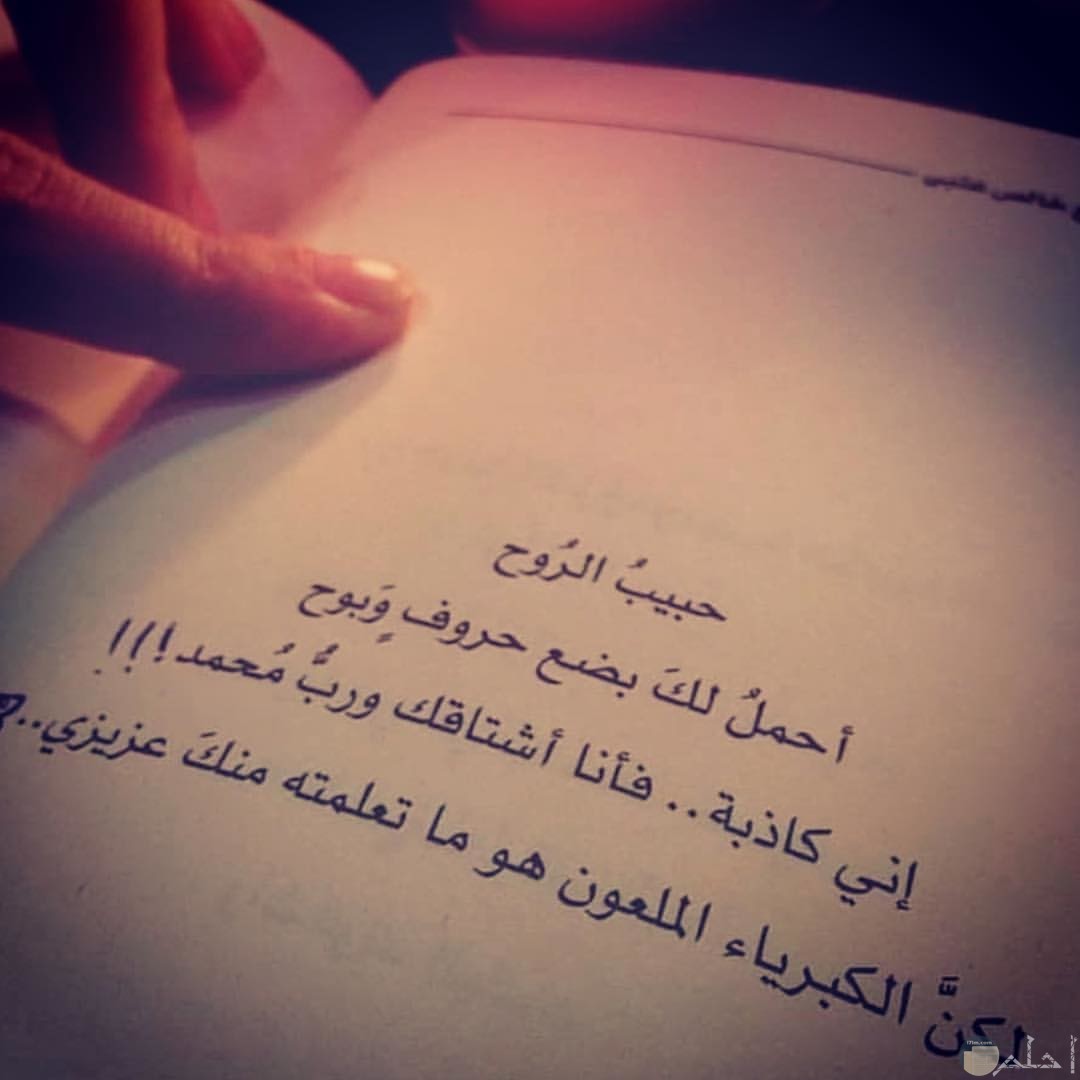 خالص قلبي
حبيبُ الرُوح
أحملُ لكَ بضع حروف وَبوح
إني كاذبة.. فأنا أشتاقك وربُّ مُحمد!!!
لكنَّ الكبرياء الملعون هو ما تعلمته منكَ عزيزي..
احلم